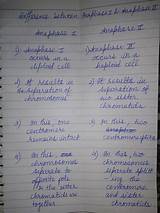 Difference between Anaphase I & Anaphase II
Anaphase I Anaphase II
1) Anaphase I 1) Anaphase II
occurs in a occurs in a
diploid cell haploid cell
2) It results in 2) It results in
separation of separation of
chromosomes two sister
chromatids
3) In this, one 3) In this, two
centromere centromere split
remains intact
4) In this, 4) In this, two
chromosomes chromosomes
separate to separate split
opposite pole
the sister centromere
chromatids are and sister
together chromatids